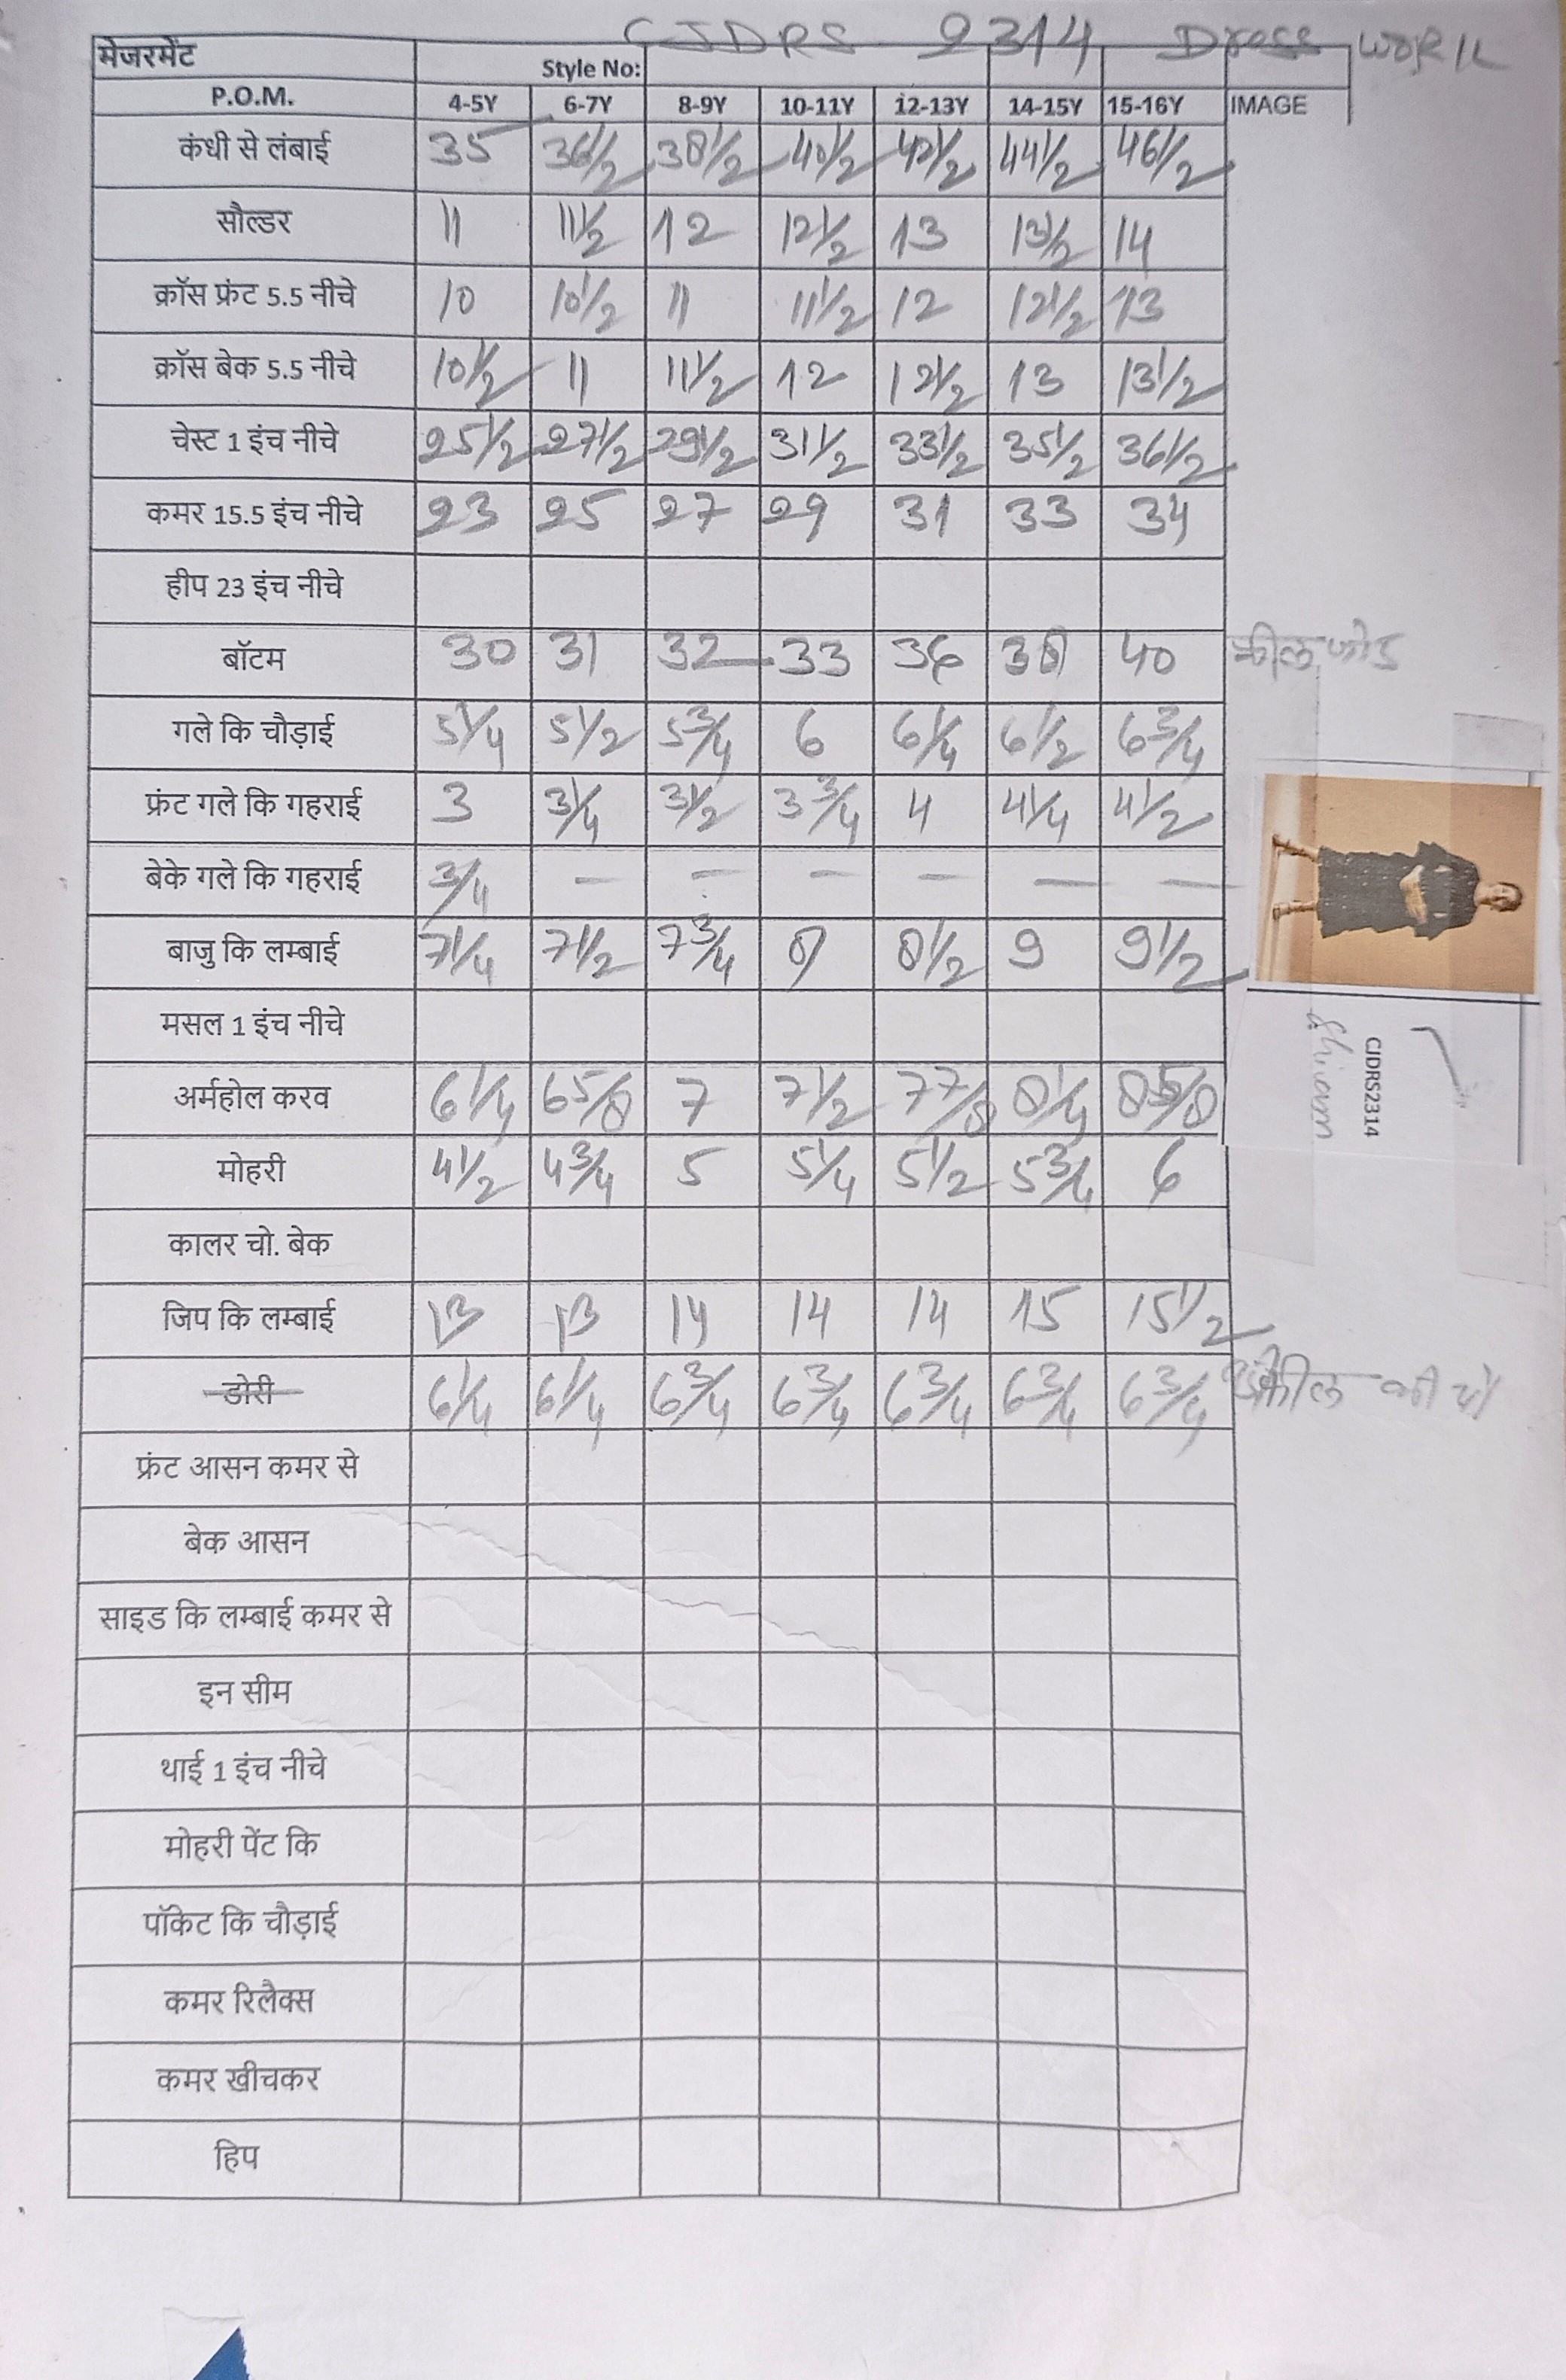 CJDRS 2314 Dress WORK
मेजरमेंट Style No:
P.O.M. 4-5Y 6-7Y 8-9Y 10-11Y 12-13Y 14-15Y 15-16Y IMAGE
कंधी से लंबाई 35 36 1/2 38 1/2 40 1/2 42 1/2 44 1/2 46 1/2
सौल्डर 11 11 1/2 12 12 1/2 13 13 1/2 14
क्रॉस फ्रंट 5.5 नीचे 10 10 1/2 11 11 1/2 12 12 1/2 13
क्रॉस बेक 5.5 नीचे 10 1/2 11 11 1/2 12 12 1/2 13 13 1/2
चेस्ट 1 इंच नीचे 25 1/2 27 1/2 29 1/2 31 1/2 33 1/2 35 1/2 36 1/2
कमर 15.5 इंच नीचे 23 25 27 29 31 33 34
हीप 23 इंच नीचे
बॉटम 30 31 32 33 36 38 40
गले कि चौड़ाई 5 1/4 5 1/2 5 3/4 6 6 1/4 6 1/2 6 3/4
फ्रंट गले कि गहराई 3 3 1/4 3 1/2 3 3/4 4 4 1/4 4 1/2
बेके गले कि गहराई 3/4 – – – – – –
बाजु कि लम्बाई 7 1/4 7 1/2 7 3/4 8 8 1/2 9 9 1/2
मसल 1 इंच नीचे
अर्महोल करव 6 1/4 6 5/8 7 7 1/2 7 7/8 8 1/4 8 5/8
मोहरी 4 1/2 4 3/4 5 5 1/4 5 1/2 5 3/4 6
कालर चो. बेक
जिप कि लम्बाई 13 13 14 14 14 15 15 1/2
डोरी 6 1/4 6 1/4 6 3/4 6 3/4 6 3/4 6 3/4 6 3/4
फ्रंट आसन कमर से
बेक आसन
साइड कि लम्बाई कमर से
इन सीम
थाई 1 इंच नीचे
मोहरी पेंट कि
पॉकेट कि चौड़ाई
कमर रिलैक्स
कमर खीचकर
हिप
CJDRS2314